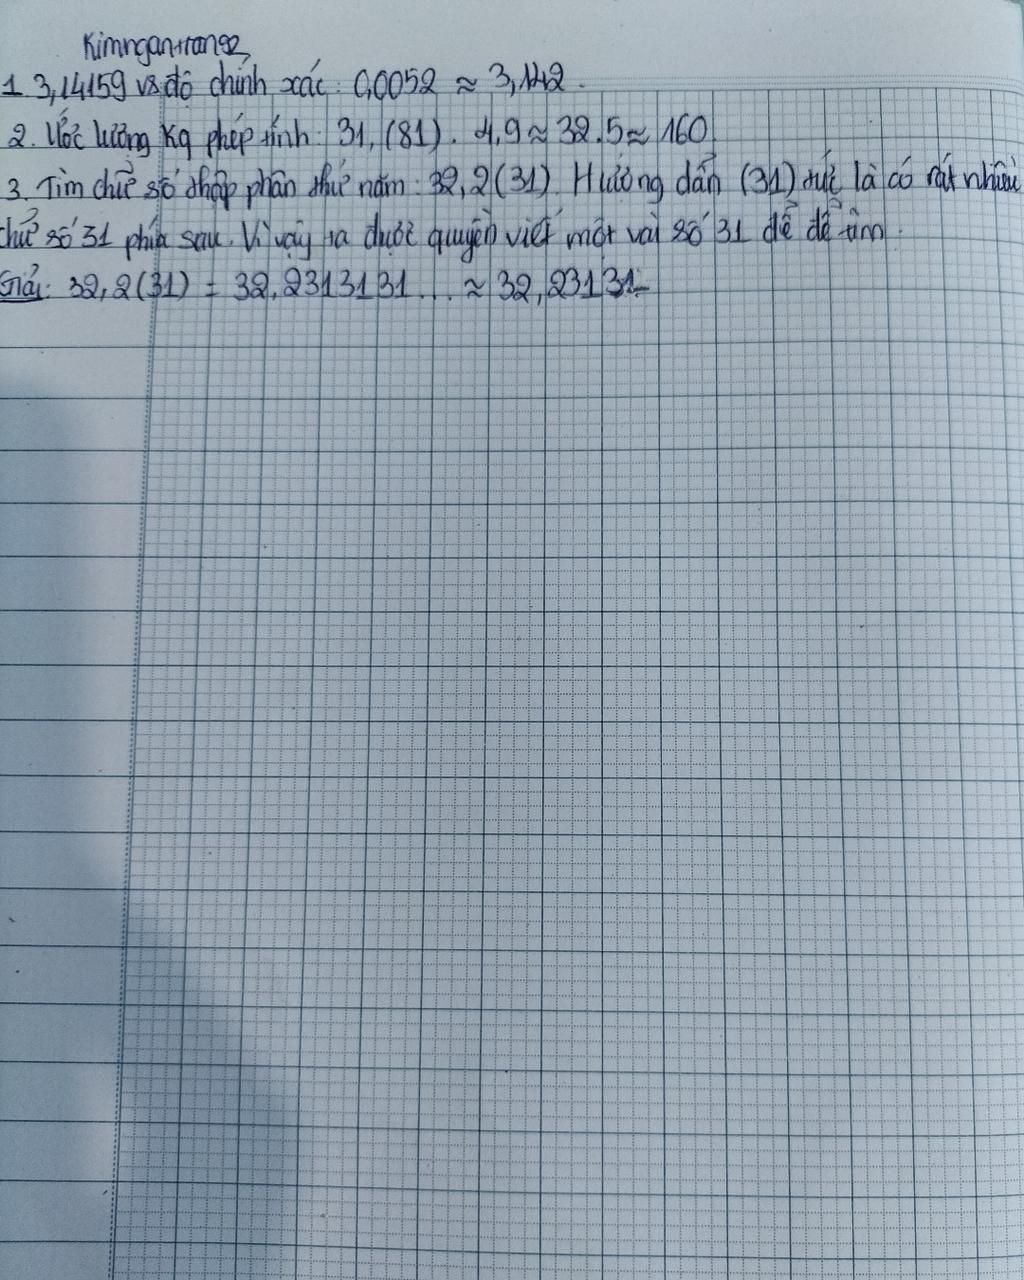 Kimngantran92
1. 3,14159 vs độ chính xác: 0,0052 ≈ 3,142.
2. Ước lượng Kq phép tính: 31,(81). 4,9 ≈ 32.5 ≈ 160
3. Tìm chữ số thập phân thứ năm: 32,2(31). Hướng dẫn (31) tức là có rất nhiều
chữ số 31 phía sau. Vì vậy ta được quyền viết một vài số 31 để dễ tìm.
Giải: 32,2(31) = 32,2313131... ≈ 32,23131